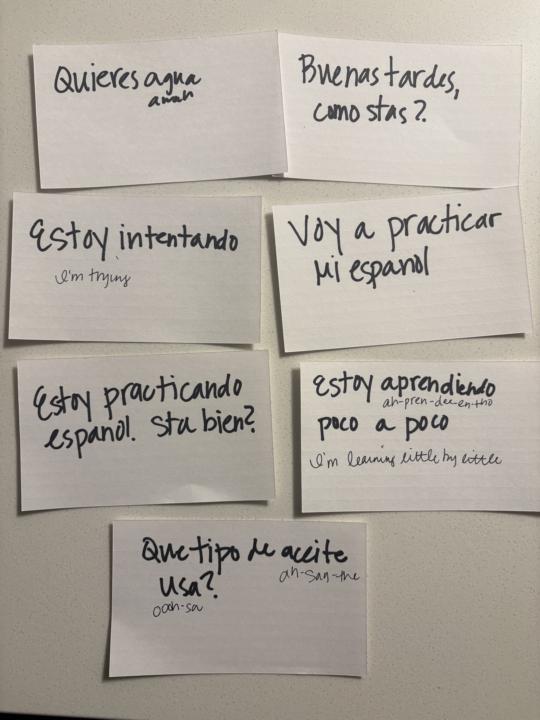 Quieres agua
awah
Buenas tardes,
como stas?
Estoy intentando
I'm trying
Voy a practicar
Mi espanol
Estoy practicando
espanol. Sta bien?
Estoy aprendiendo
ah-pren-dee-en-tho
poco a poco
I'm learning little by little
Que tipo de aceite
ah-say-the
usa?
ooh-sa